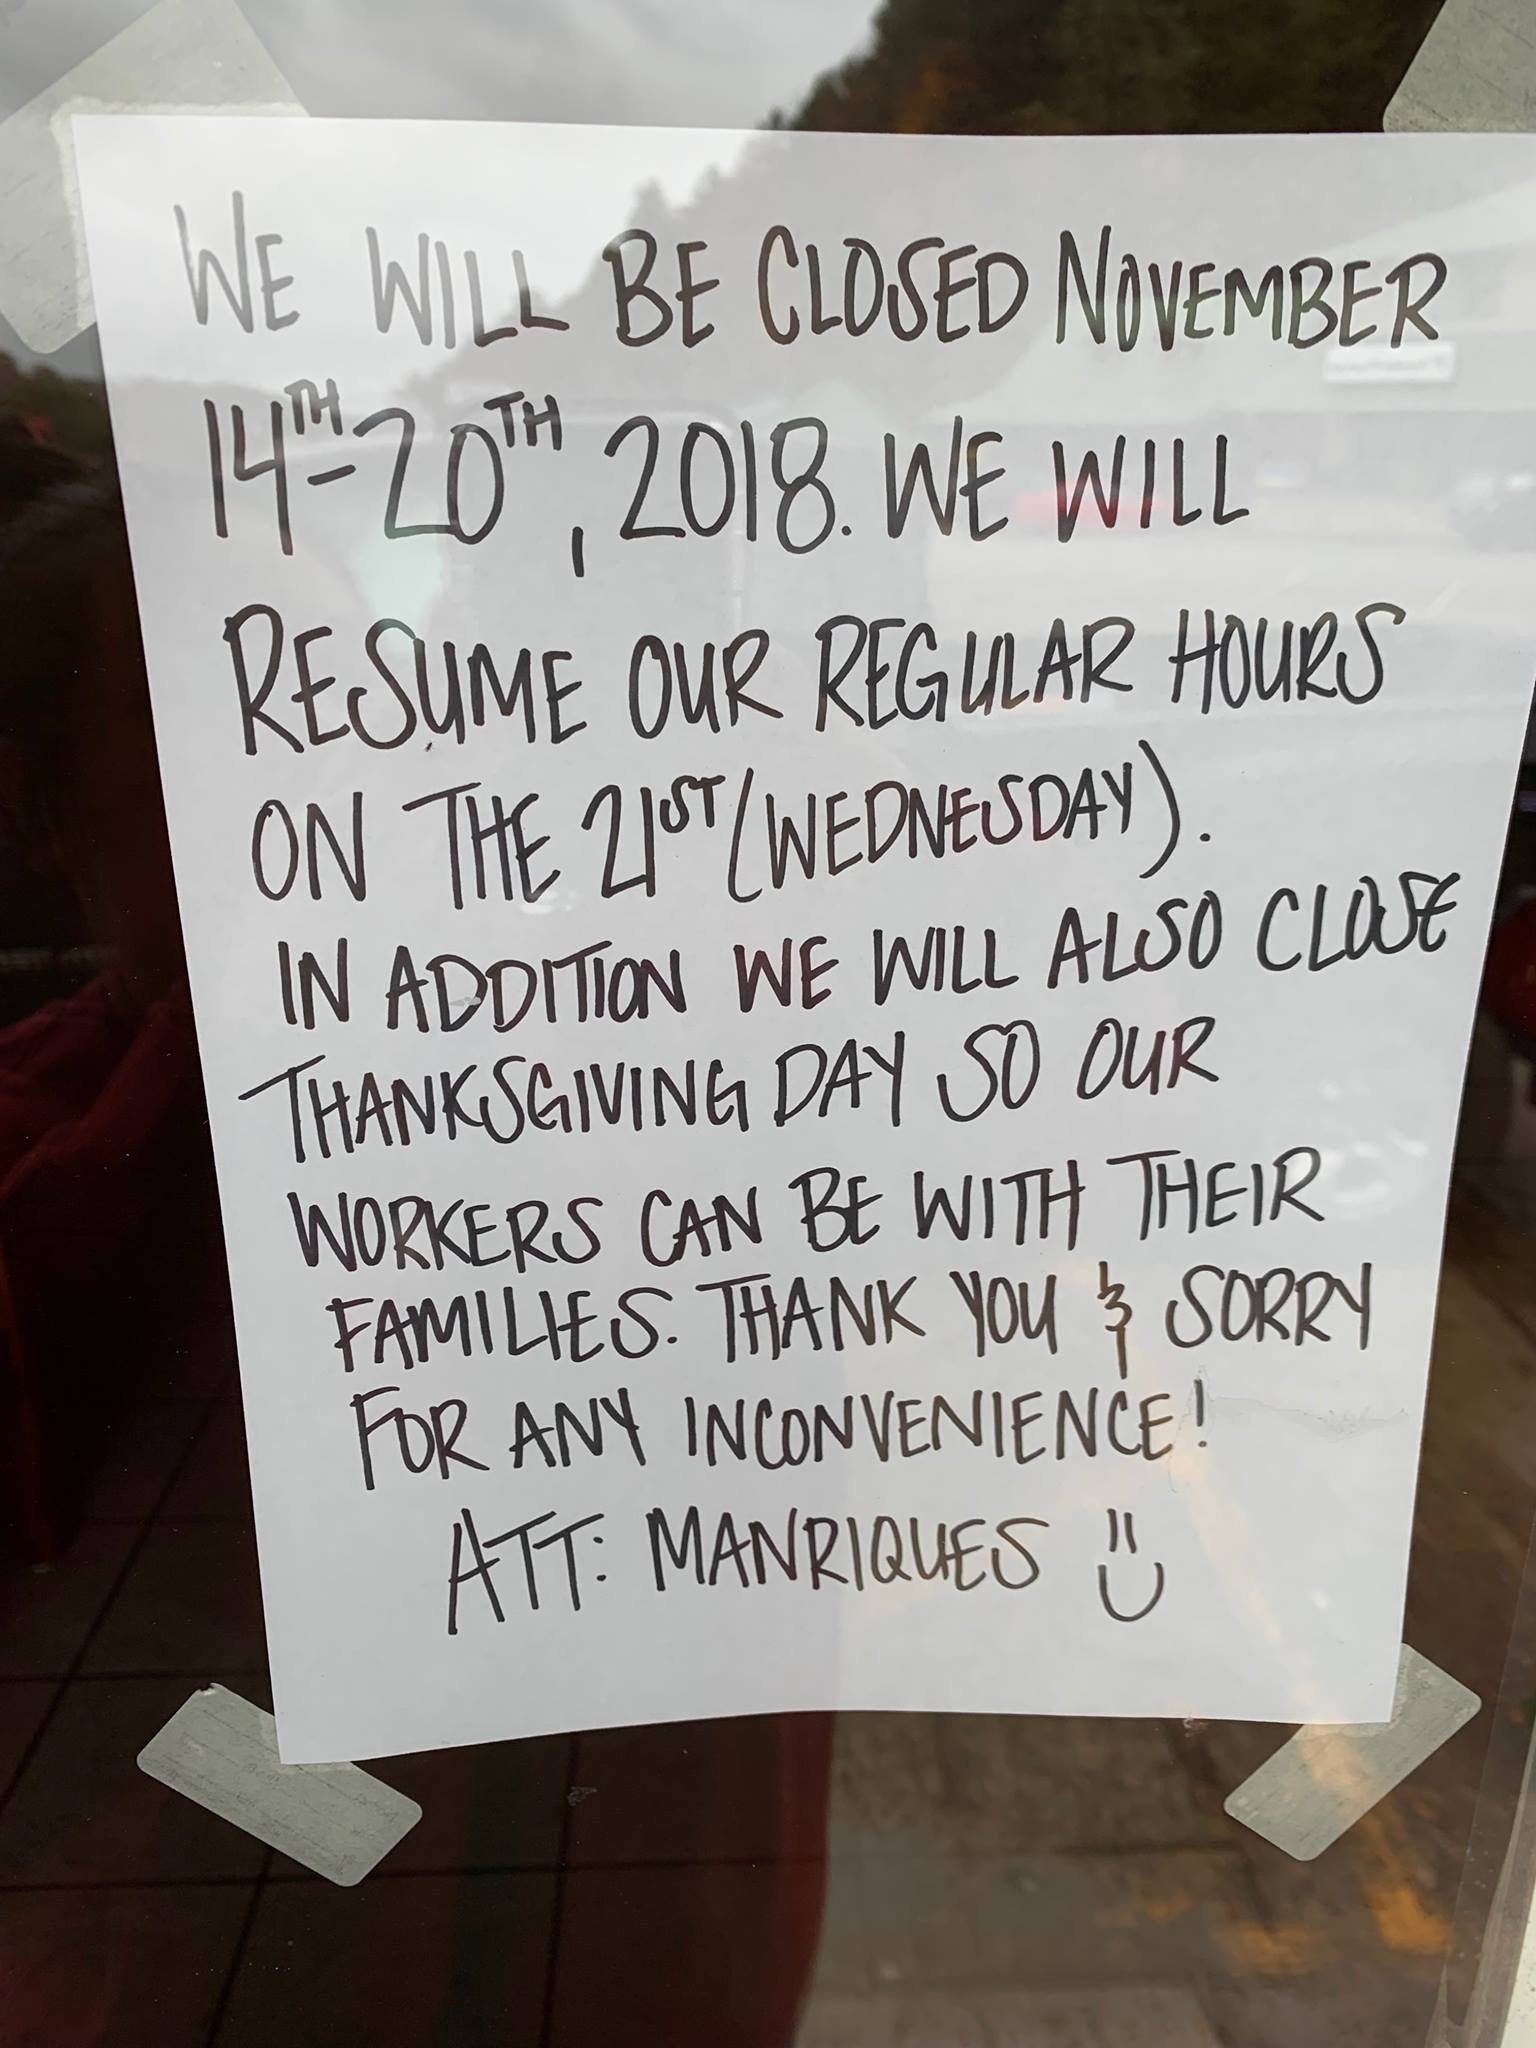 WE WILL BE CLOSED NOVEMBER
14TH-20TH, 2018. WE WILL
RESUME OUR REGULAR HOURS
ON THE 21ST (WEDNESDAY).
IN ADDITION WE WILL ALSO CLOSE
THANKSGIVING DAY SO OUR
WORKERS CAN BE WITH THEIR
FAMILIES. THANK YOU & SORRY
FOR ANY INCONVENIENCE!
ATT: MANRIQUES